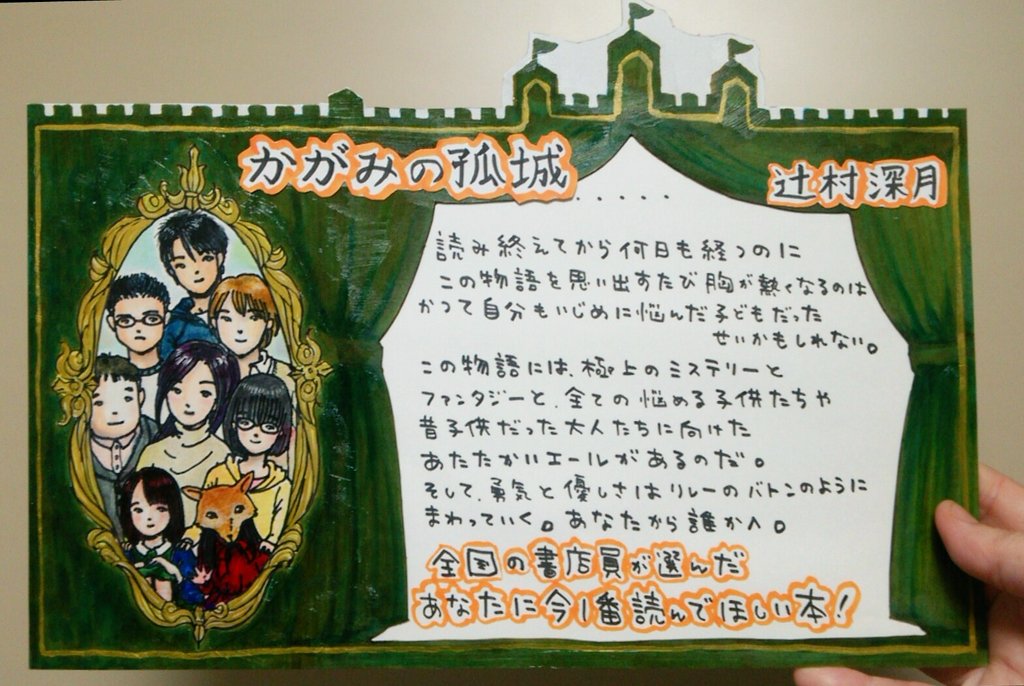 かがみの孤城
辻村深月
・・・・・
読み終えてから何日も経つのに
この物語を思い出すたび胸が熱くなるのは
かつて自分もいじめに悩んだ子どもだった
せいかもしれない。
この物語には、極上のミステリーと
ファンタジーと、全ての悩める子供たちや
昔子供だった大人たちに向けた
あたたかいエールがあるのだ。
そして、勇気と優しさはリレーのバトンのように
まわっていく。あなたから誰かへ。
全国の書店員が選んだ
あなたに今1番読んでほしい本!